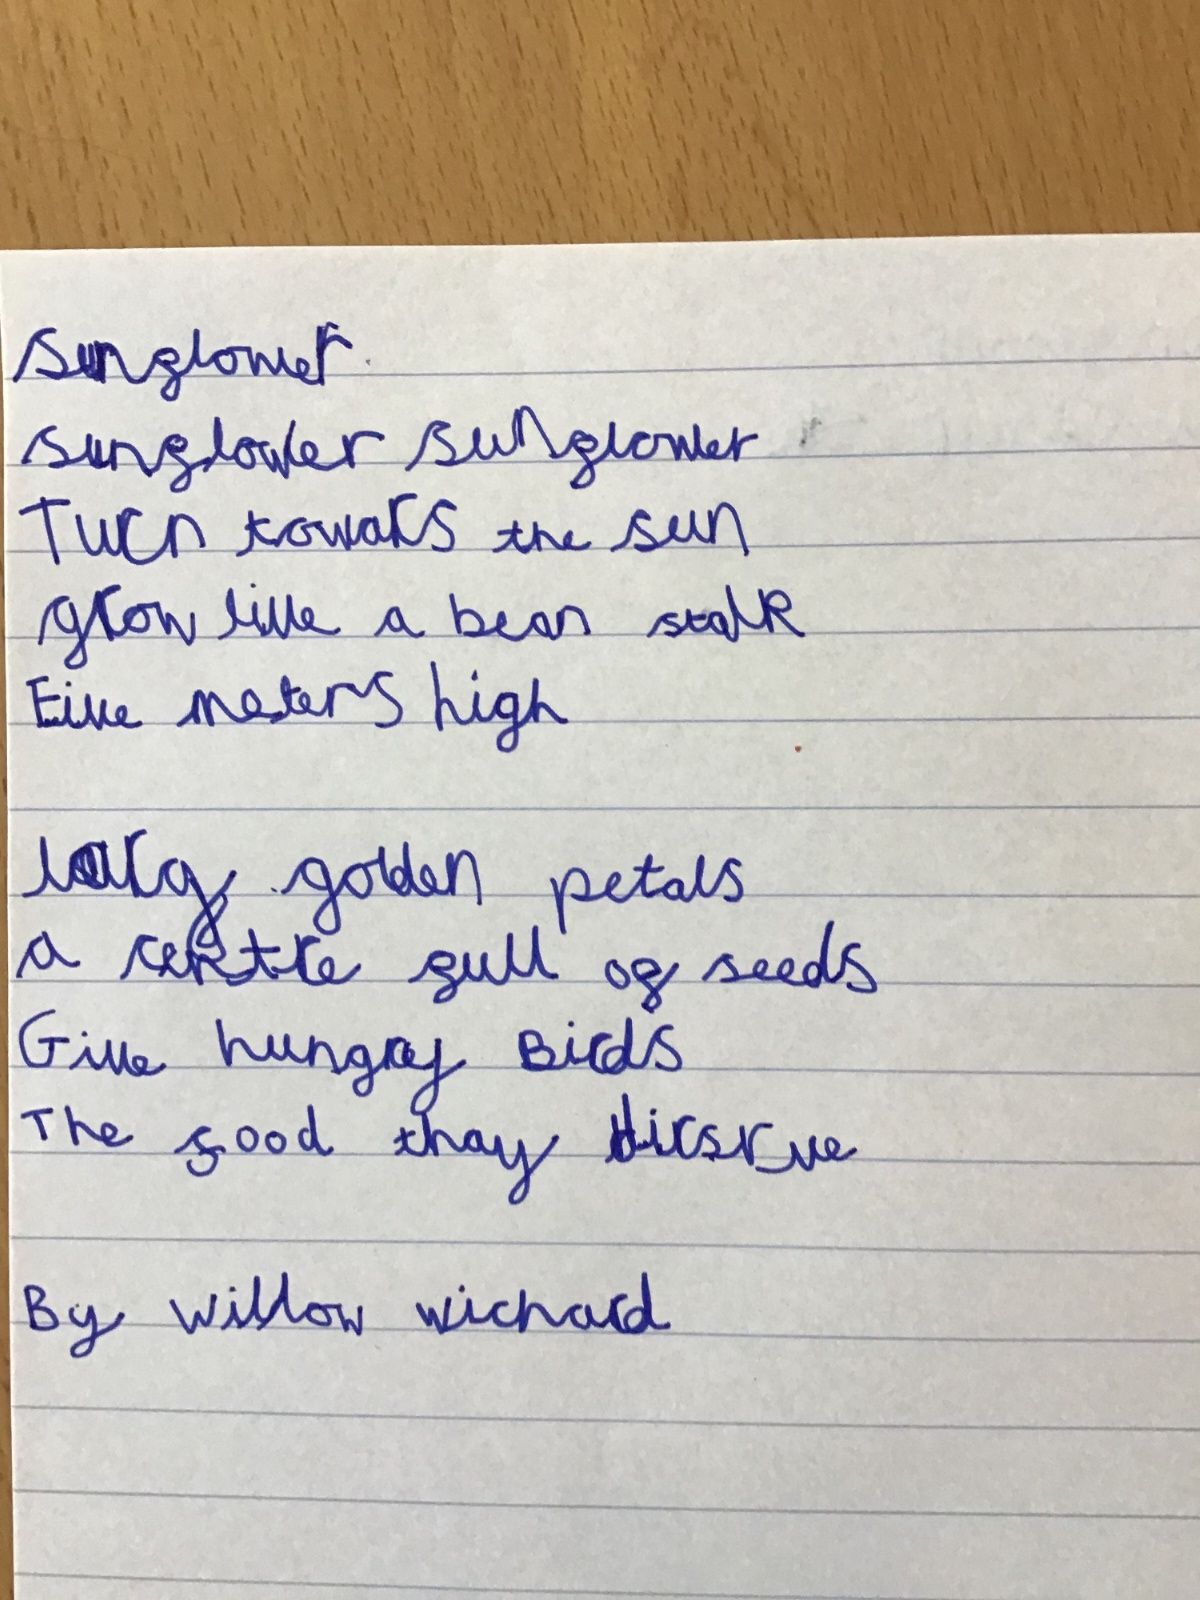 Sunflower
sunflower sunflower
Turn towars the sun
grow like a bean stalk
Five meters high
larg golden petals
a centre full of seeds
Give hungry Birds
The food thay dirsrve
By Willow Wichard